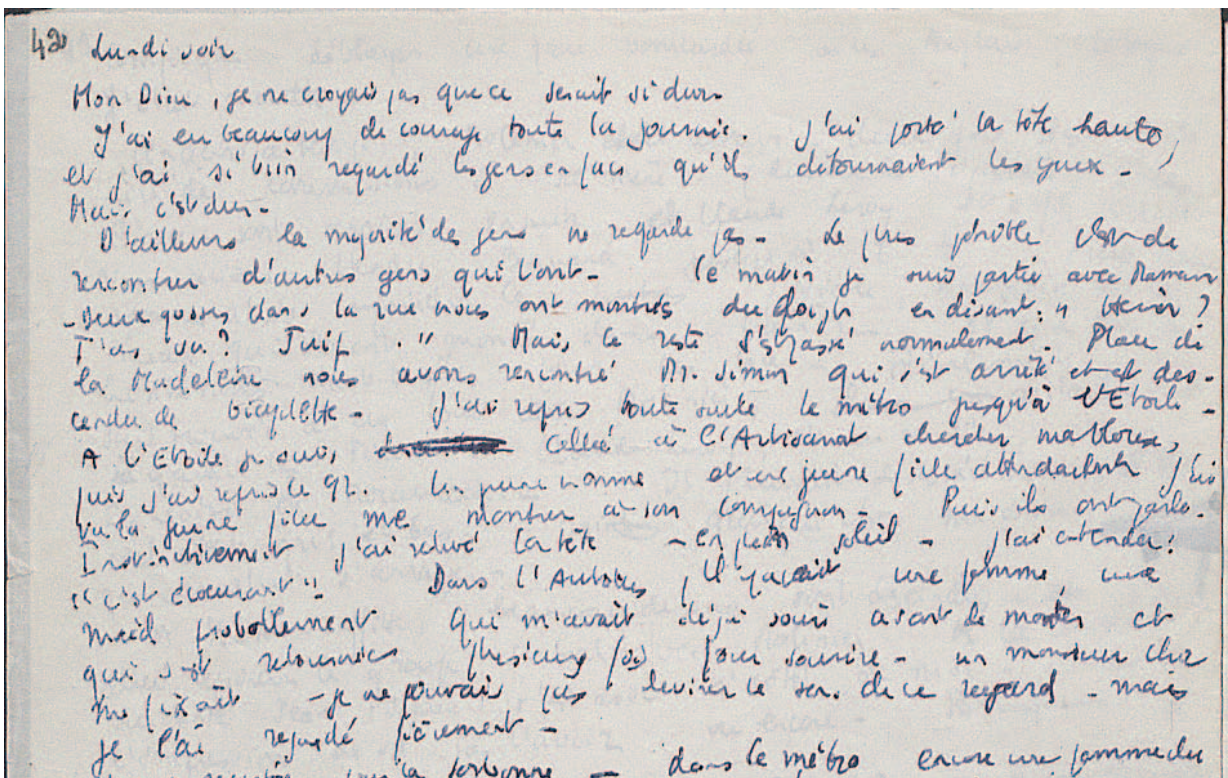 42
Lundi soir
Mon Dieu, je ne croyais pas que ce serait si dur.
J'ai eu beaucoup de courage toute la journée. J'ai porté la tête haute,
et j'ai si bien regardé les gens en face qu'ils détournaient les yeux -
Mais c'est dur -
D'ailleurs la majorité des gens ne regarde pas - Le plus pénible c'est de
rencontrer d'autres gens qui l'ont - Ce matin je suis partie avec Maman
- deux gosses dans la rue nous ont montrés du doigt en disant : "Hein ?
T'as vu ? Juif." Mais le reste s'est passé normalement. Place de
la Madeleine nous avons rencontré Mr. Simon qui s'est arrêté et est des-
cendu de bicyclette - J'ai repris toute seule le métro jusqu'à l'Etoile -
A l'Etoile je suis allée à l'Artisanat chercher ma blouse,
puis j'ai repris le 92. Un jeune homme et une jeune fille attendaient, j'ai
vu la jeune fille me montrer à son compagnon - Puis ils ont parlé.
Instinctivement j'ai relevé la tête - en plein soleil - j'ai entendu :
"c'est écoeurant". Dans l'Autobus, il y avait une femme une
maid probablement qui m'avait déjà souri avant de monter et
qui s'est retournée plusieurs fois pour sourire - un monsieur chic
me fixait - je ne pouvais pas deviner le sens de ce regard - mais
je l'ai regardé fièrement -
la Sorbonne - dans le métro encore une femme du